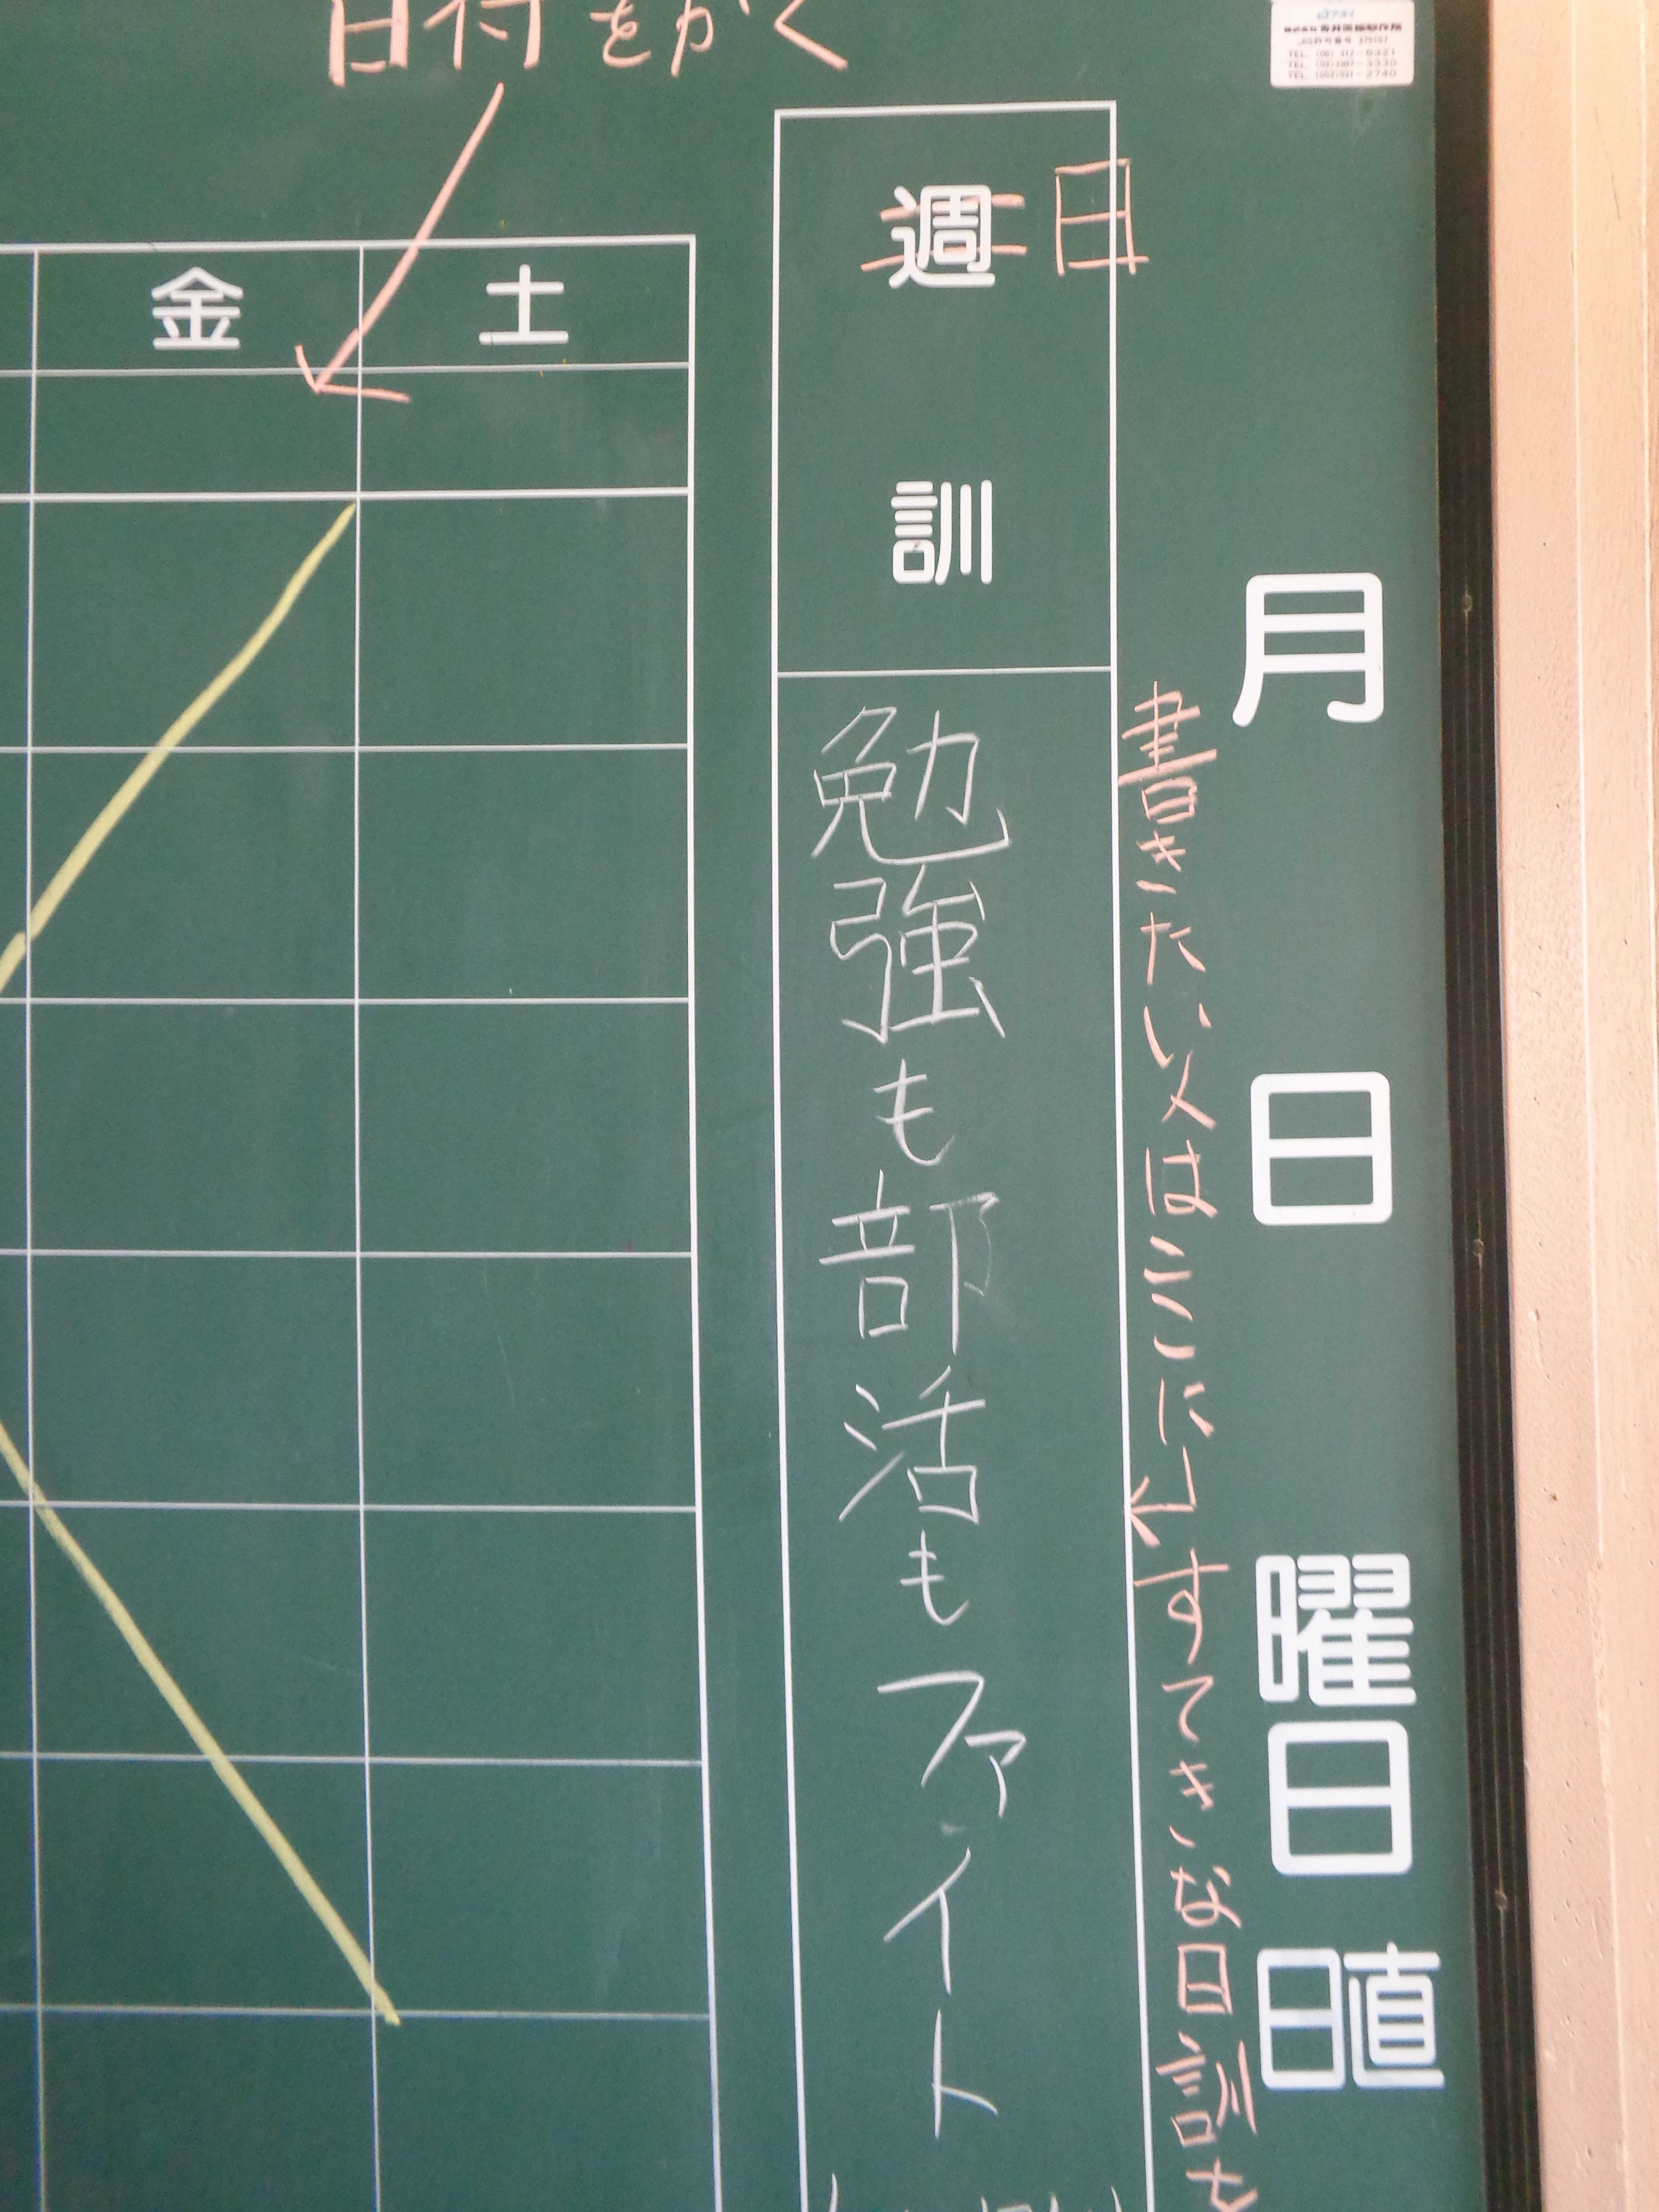 日付をかく
金 土
週訓
日
勉強も部活もファイト
書きたい人はここに
すてきな日訓を
月 日 曜日 日直